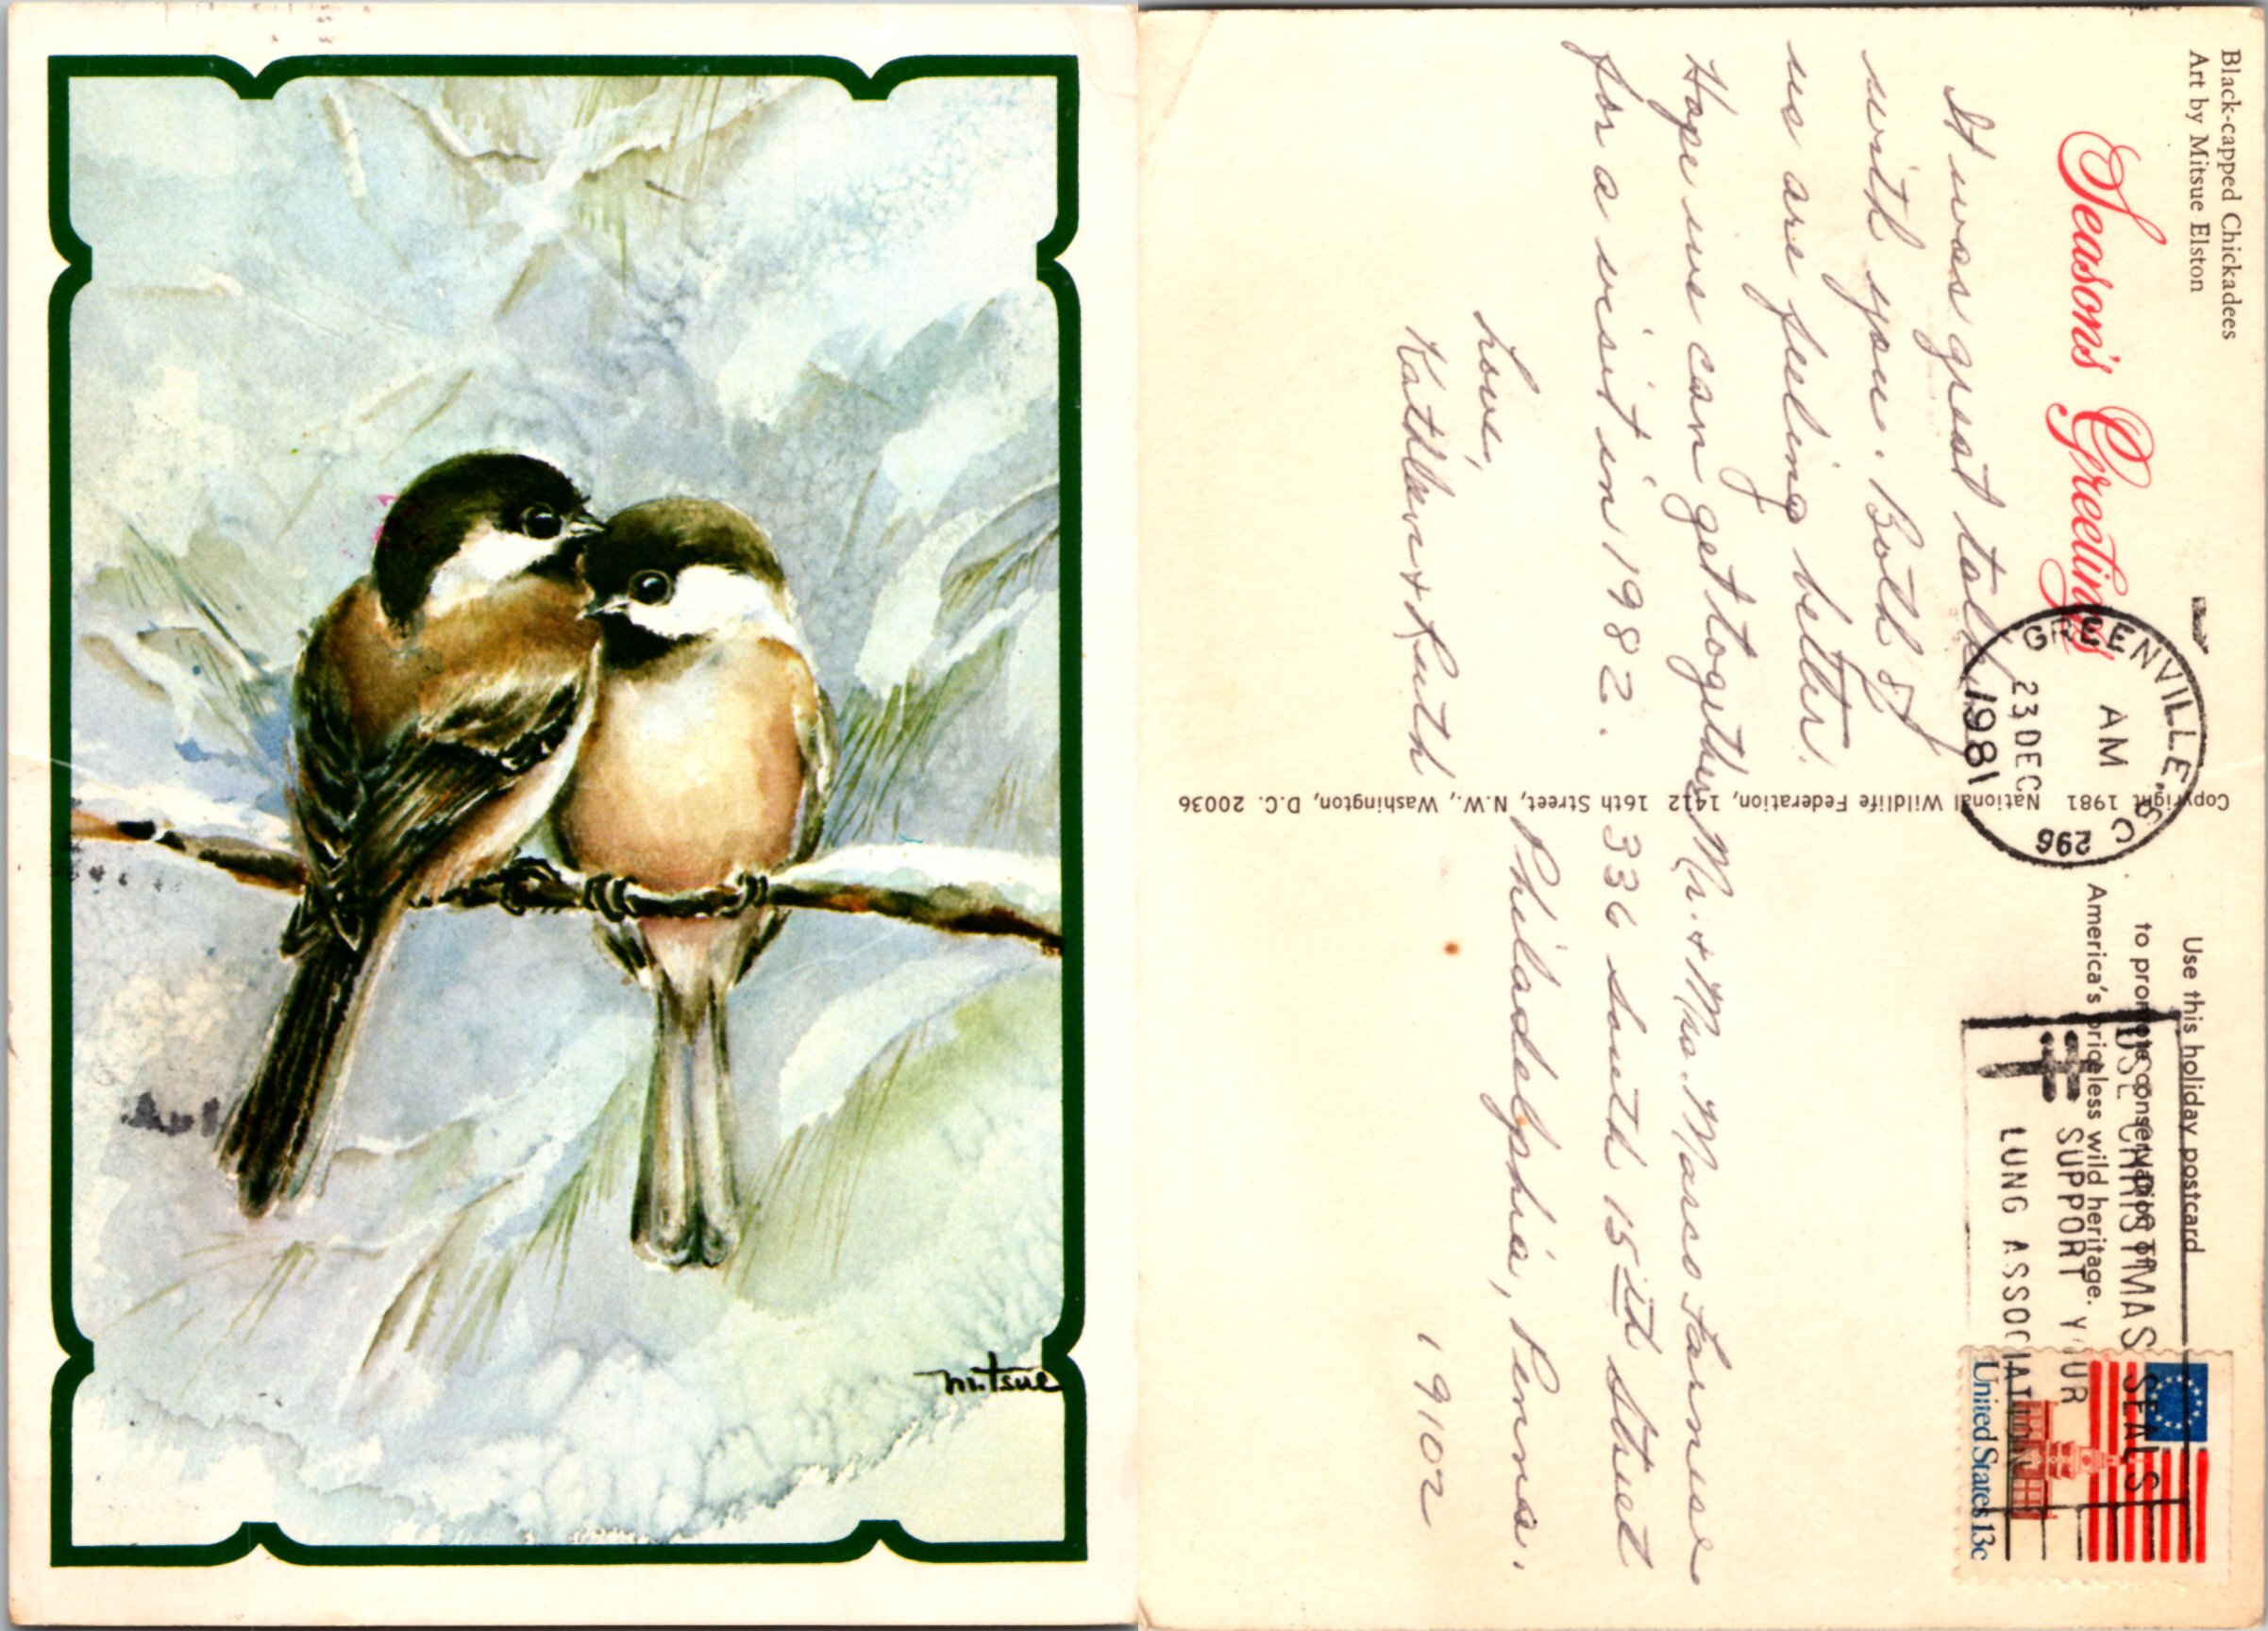 mitsue
Black-capped Chickadees
Art by Mitsue Elston
Season's Greetings
It was great talking
with you. Both of
us are feeling better.
Hope we can get together
for a visit in 1982.
Love,
Kathleen & Ruth
Copyright 1981 National Wildlife Federation, 1412 16th Street, N.W., Washington, D.C. 20036
GREENVILLE, S C
AM
23 DEC
1981
296
Use this holiday postcard
to promote conservation of
America's priceless wild heritage.
USE CHRISTMAS SEALS
SUPPORT YOUR
LUNG ASSOCIATION
United States 13c
Mr. & Mrs. Marco Farnese
336 South 15th Street
Philadelphia, Penna.
19102